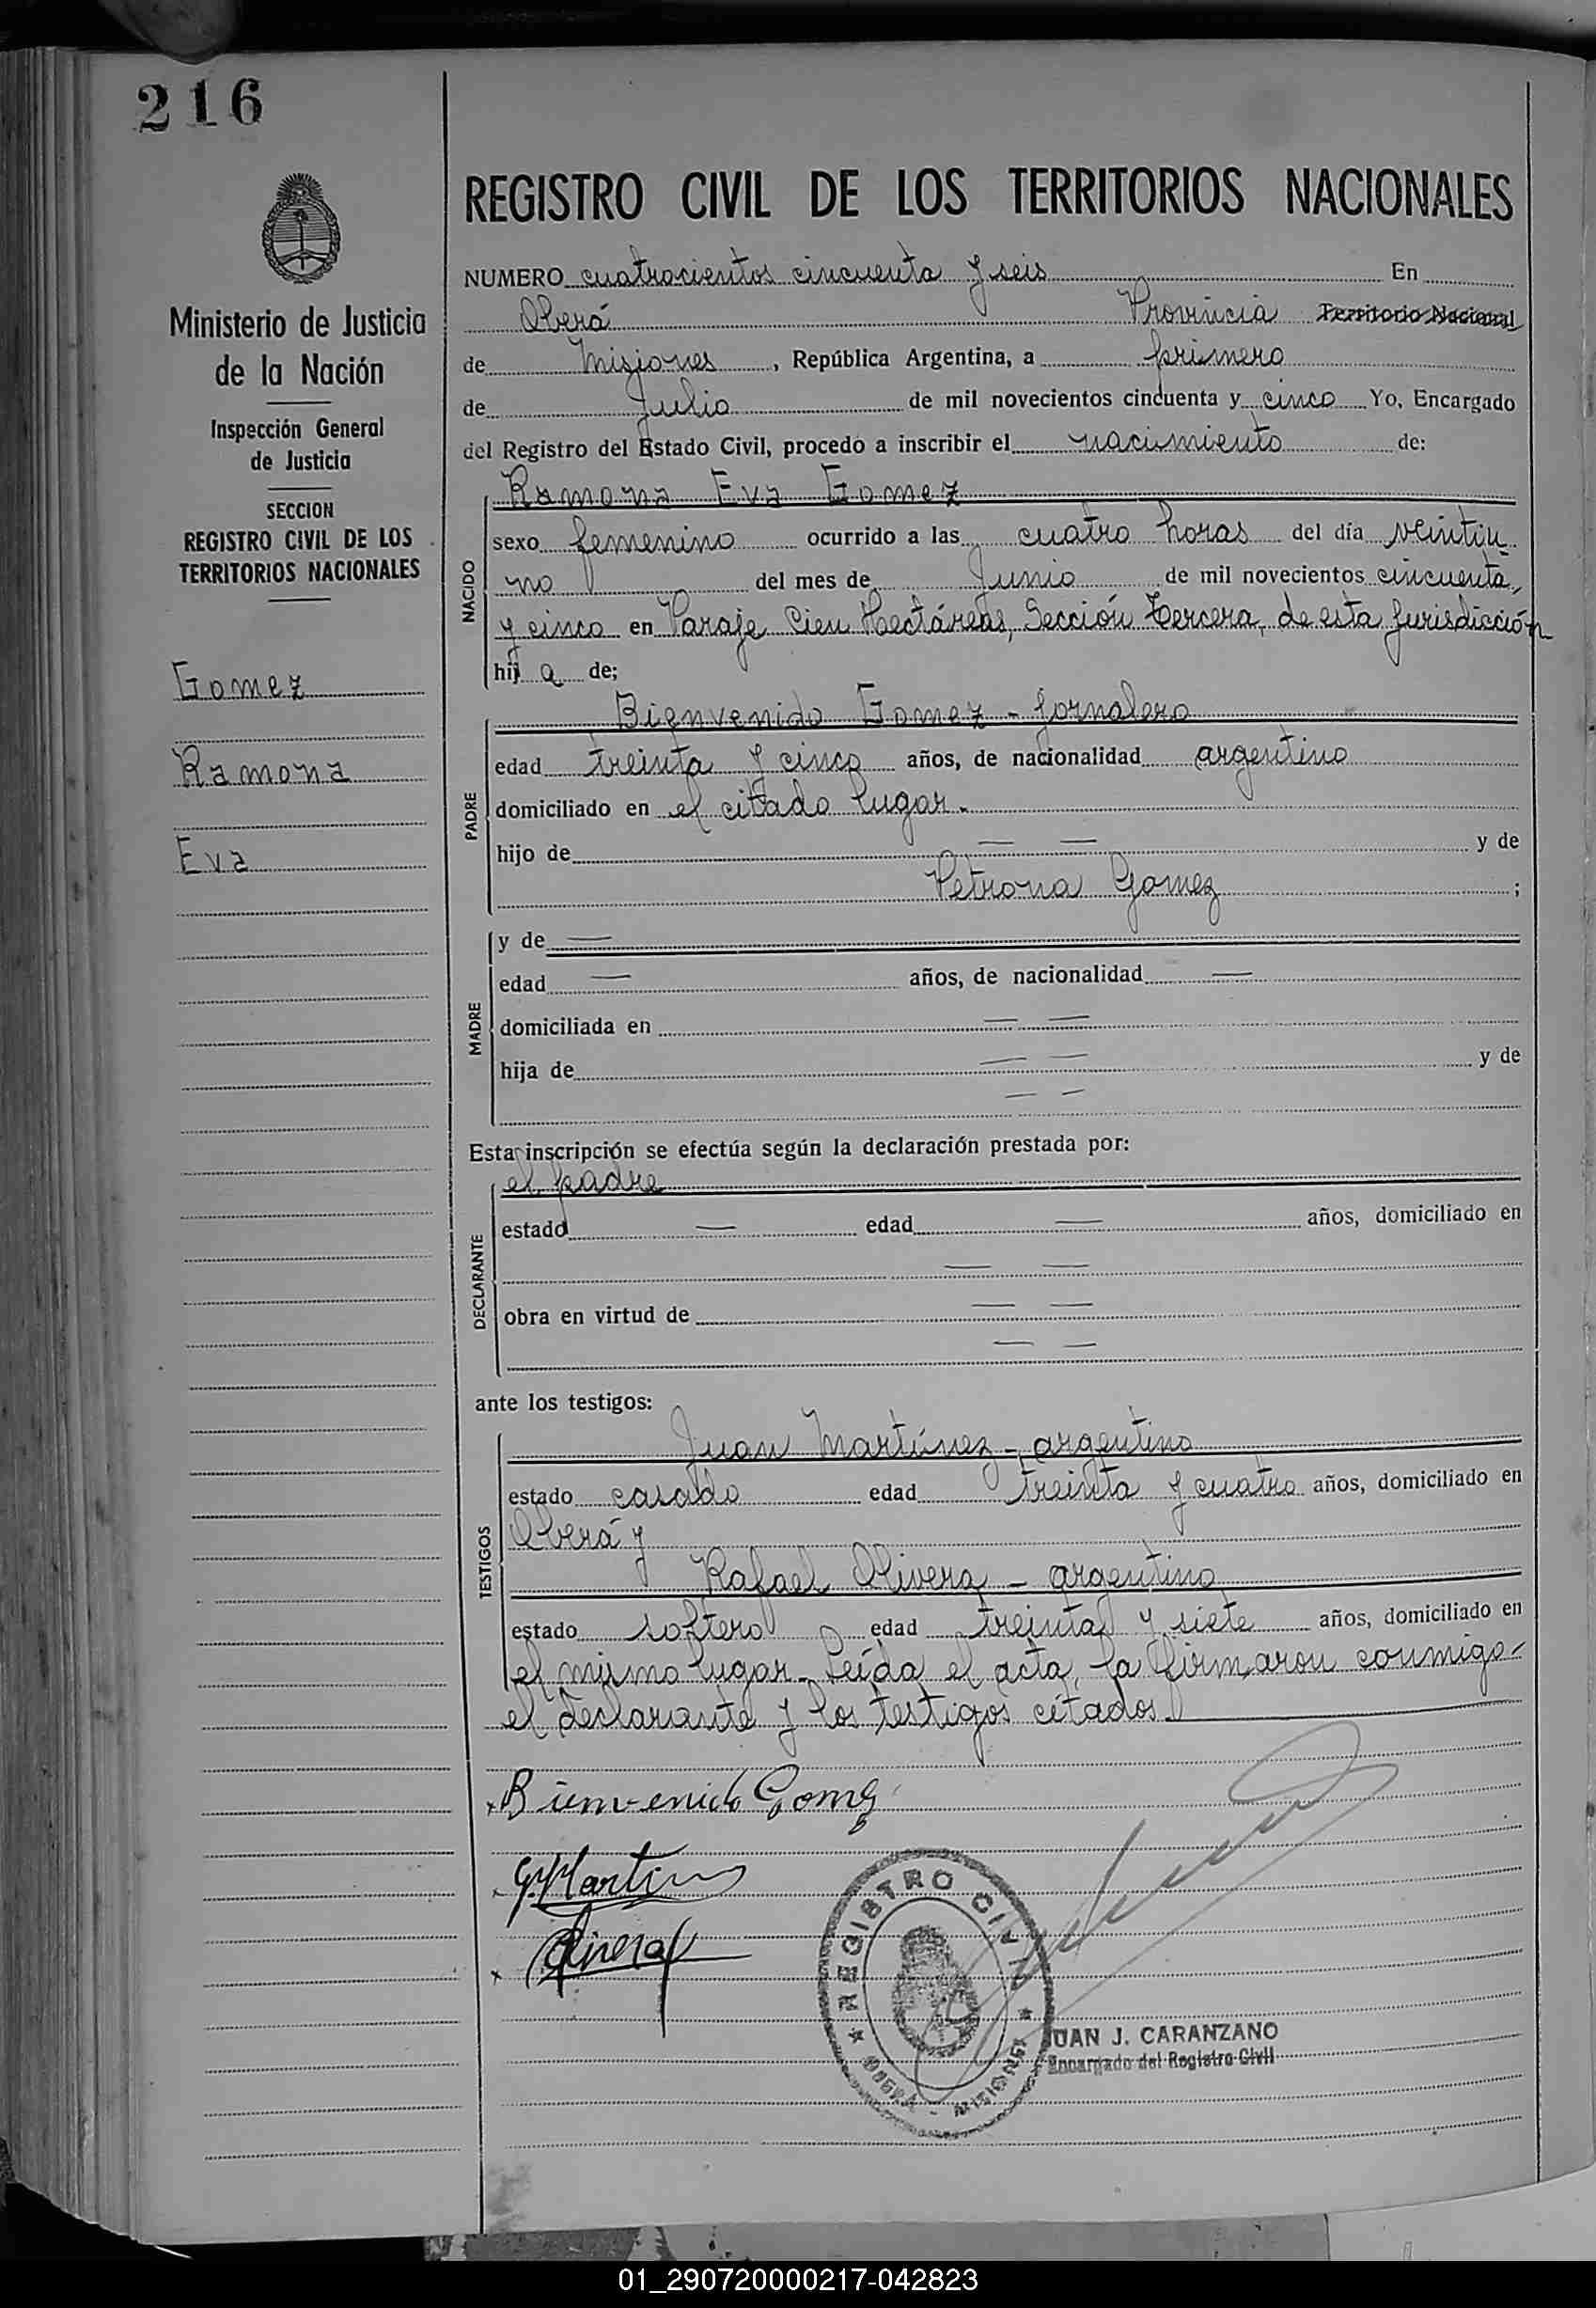 216
Ministerio de Justicia
de la Nación
Inspección General
de Justicia
SECCION
REGISTRO CIVIL DE LOS
TERRITORIOS NACIONALES
Gomez
Ramona
Eva
REGISTRO CIVIL DE LOS TERRITORIOS NACIONALES
NUMERO cuatrocientos cincuenta y seis En
Oberá Provincia Territorio Nacional
de Misiones, República Argentina, a primero
de Julio de mil novecientos cincuenta y cinco Yo, Encargado
del Registro del Estado Civil, procedo a inscribir el nacimiento de:
Ramona Eva Gomez
NACIDO
sexo femenino ocurrido a las cuatro horas del día veintiu
no del mes de Junio de mil novecientos cincuenta
y cinco en Paraje Cien Hectáreas, Sección Tercera, de esta jurisdicción
hij a de;
Bienvenido Gomez - jornalero
PADRE
edad treinta y cinco años, de nacionalidad argentino
domiciliado en el citado lugar.
hijo de — — y de
Petrona Gomez ;
MADRE
y de —
edad — años, de nacionalidad —
domiciliada en — —
hija de — — y de
— —
Esta inscripción se efectúa según la declaración prestada por:
el padre
DECLARANTE
estado — edad — años, domiciliado en
— —
obra en virtud de — —
— —
ante los testigos:
TESTIGOS
Juan Martínez - argentino
estado casado edad treinta y cuatro años, domiciliado en
Oberá y
Rafael Olivera - argentino
estado soltero edad treinta y siete años, domiciliado en
el mismo lugar. Leída el acta, la firmaron conmigo
el declarante y los testigos citados.
Bienvenido Gomez
REGISTRO CIVIL
OBERA - MISIONES
JUAN J. CARANZANO
Encargado del Registro Civil
01_290720000217-042823